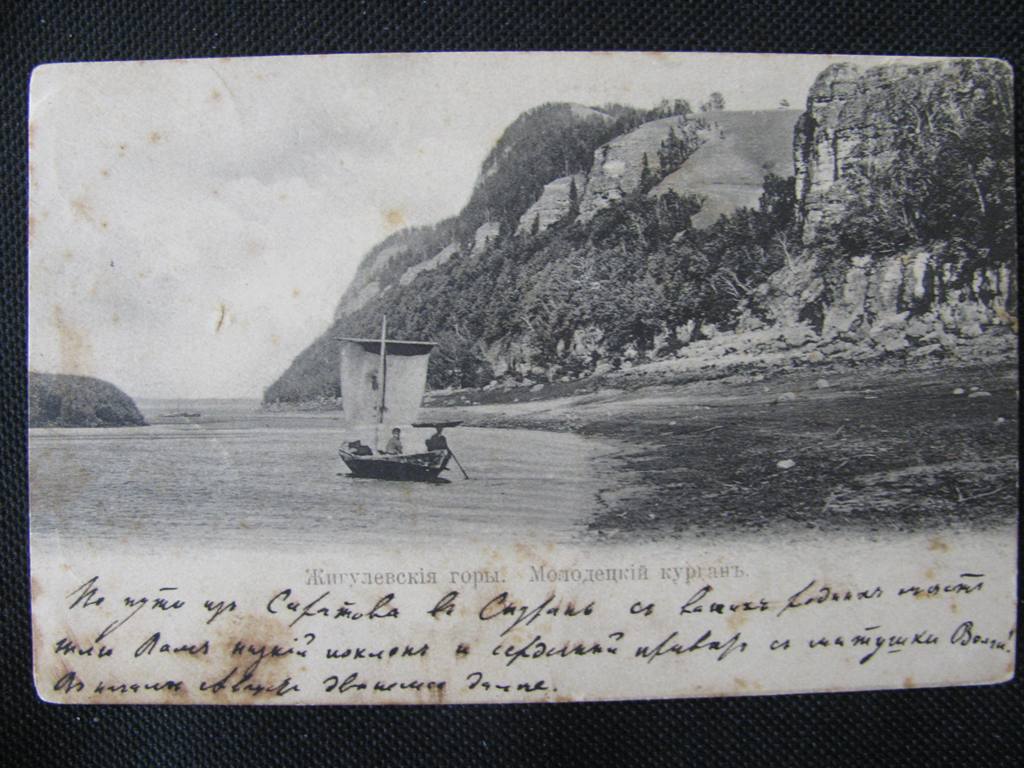 Жигулевскія горы. Молодецкій курганъ.
По пути изъ Саратова въ Сызрань съ вашихъ родныхъ мѣстъ
шлю Вамъ низкій поклонъ и сердечный привѣтъ съ матушки Волги!
двигаемся далѣе.